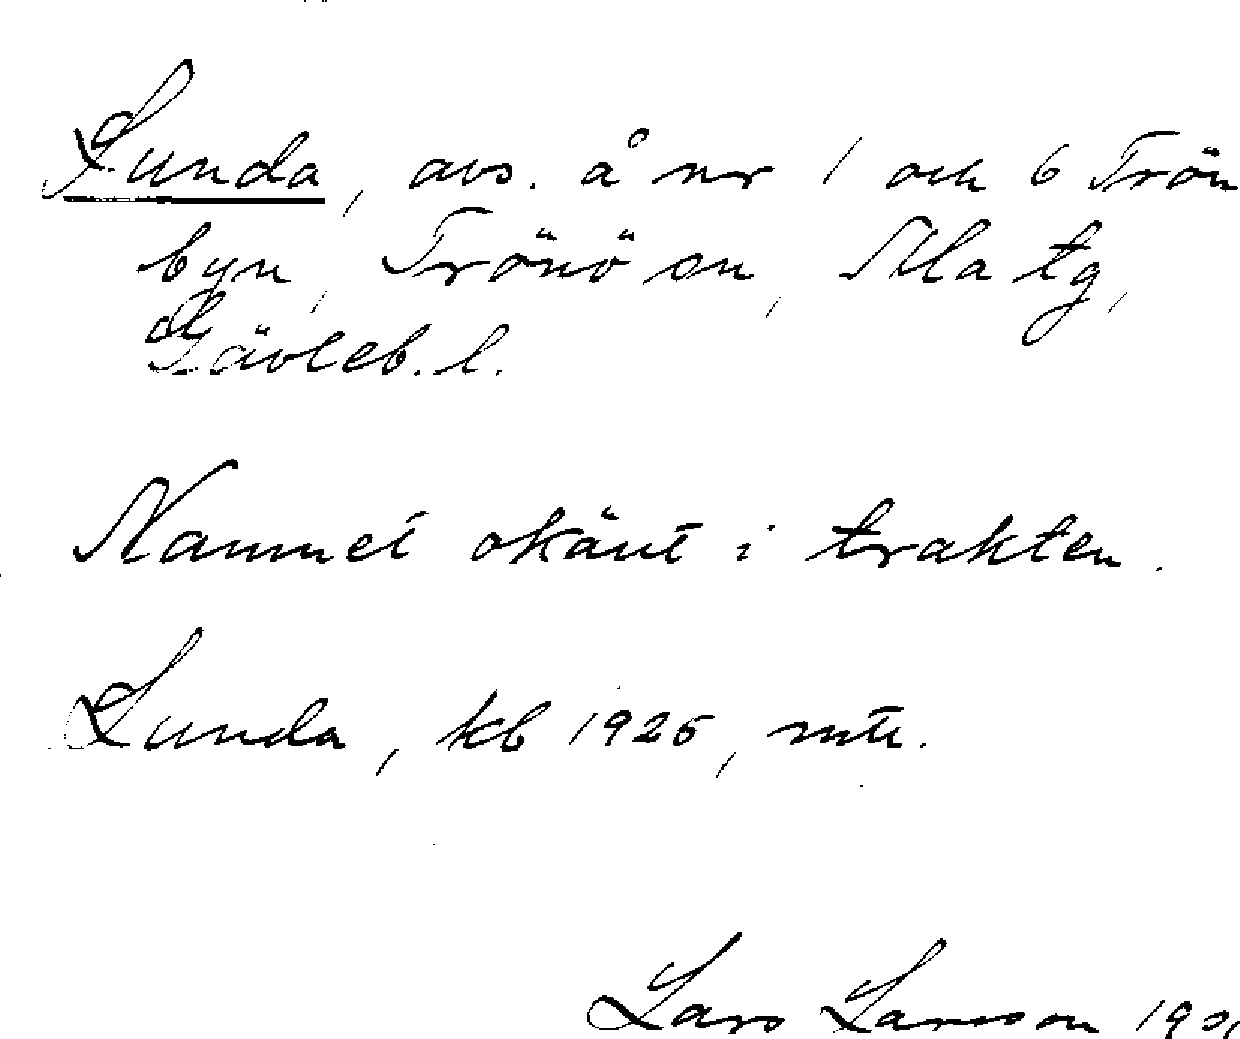 Lunda, avs. å nr 1 och 6 Trön
byn, Trönö sn, Ala tg,
Gävleb. l.
Namnet okänt i trakten.
Lunda, kb 1925, mtr.
Lars Larsson